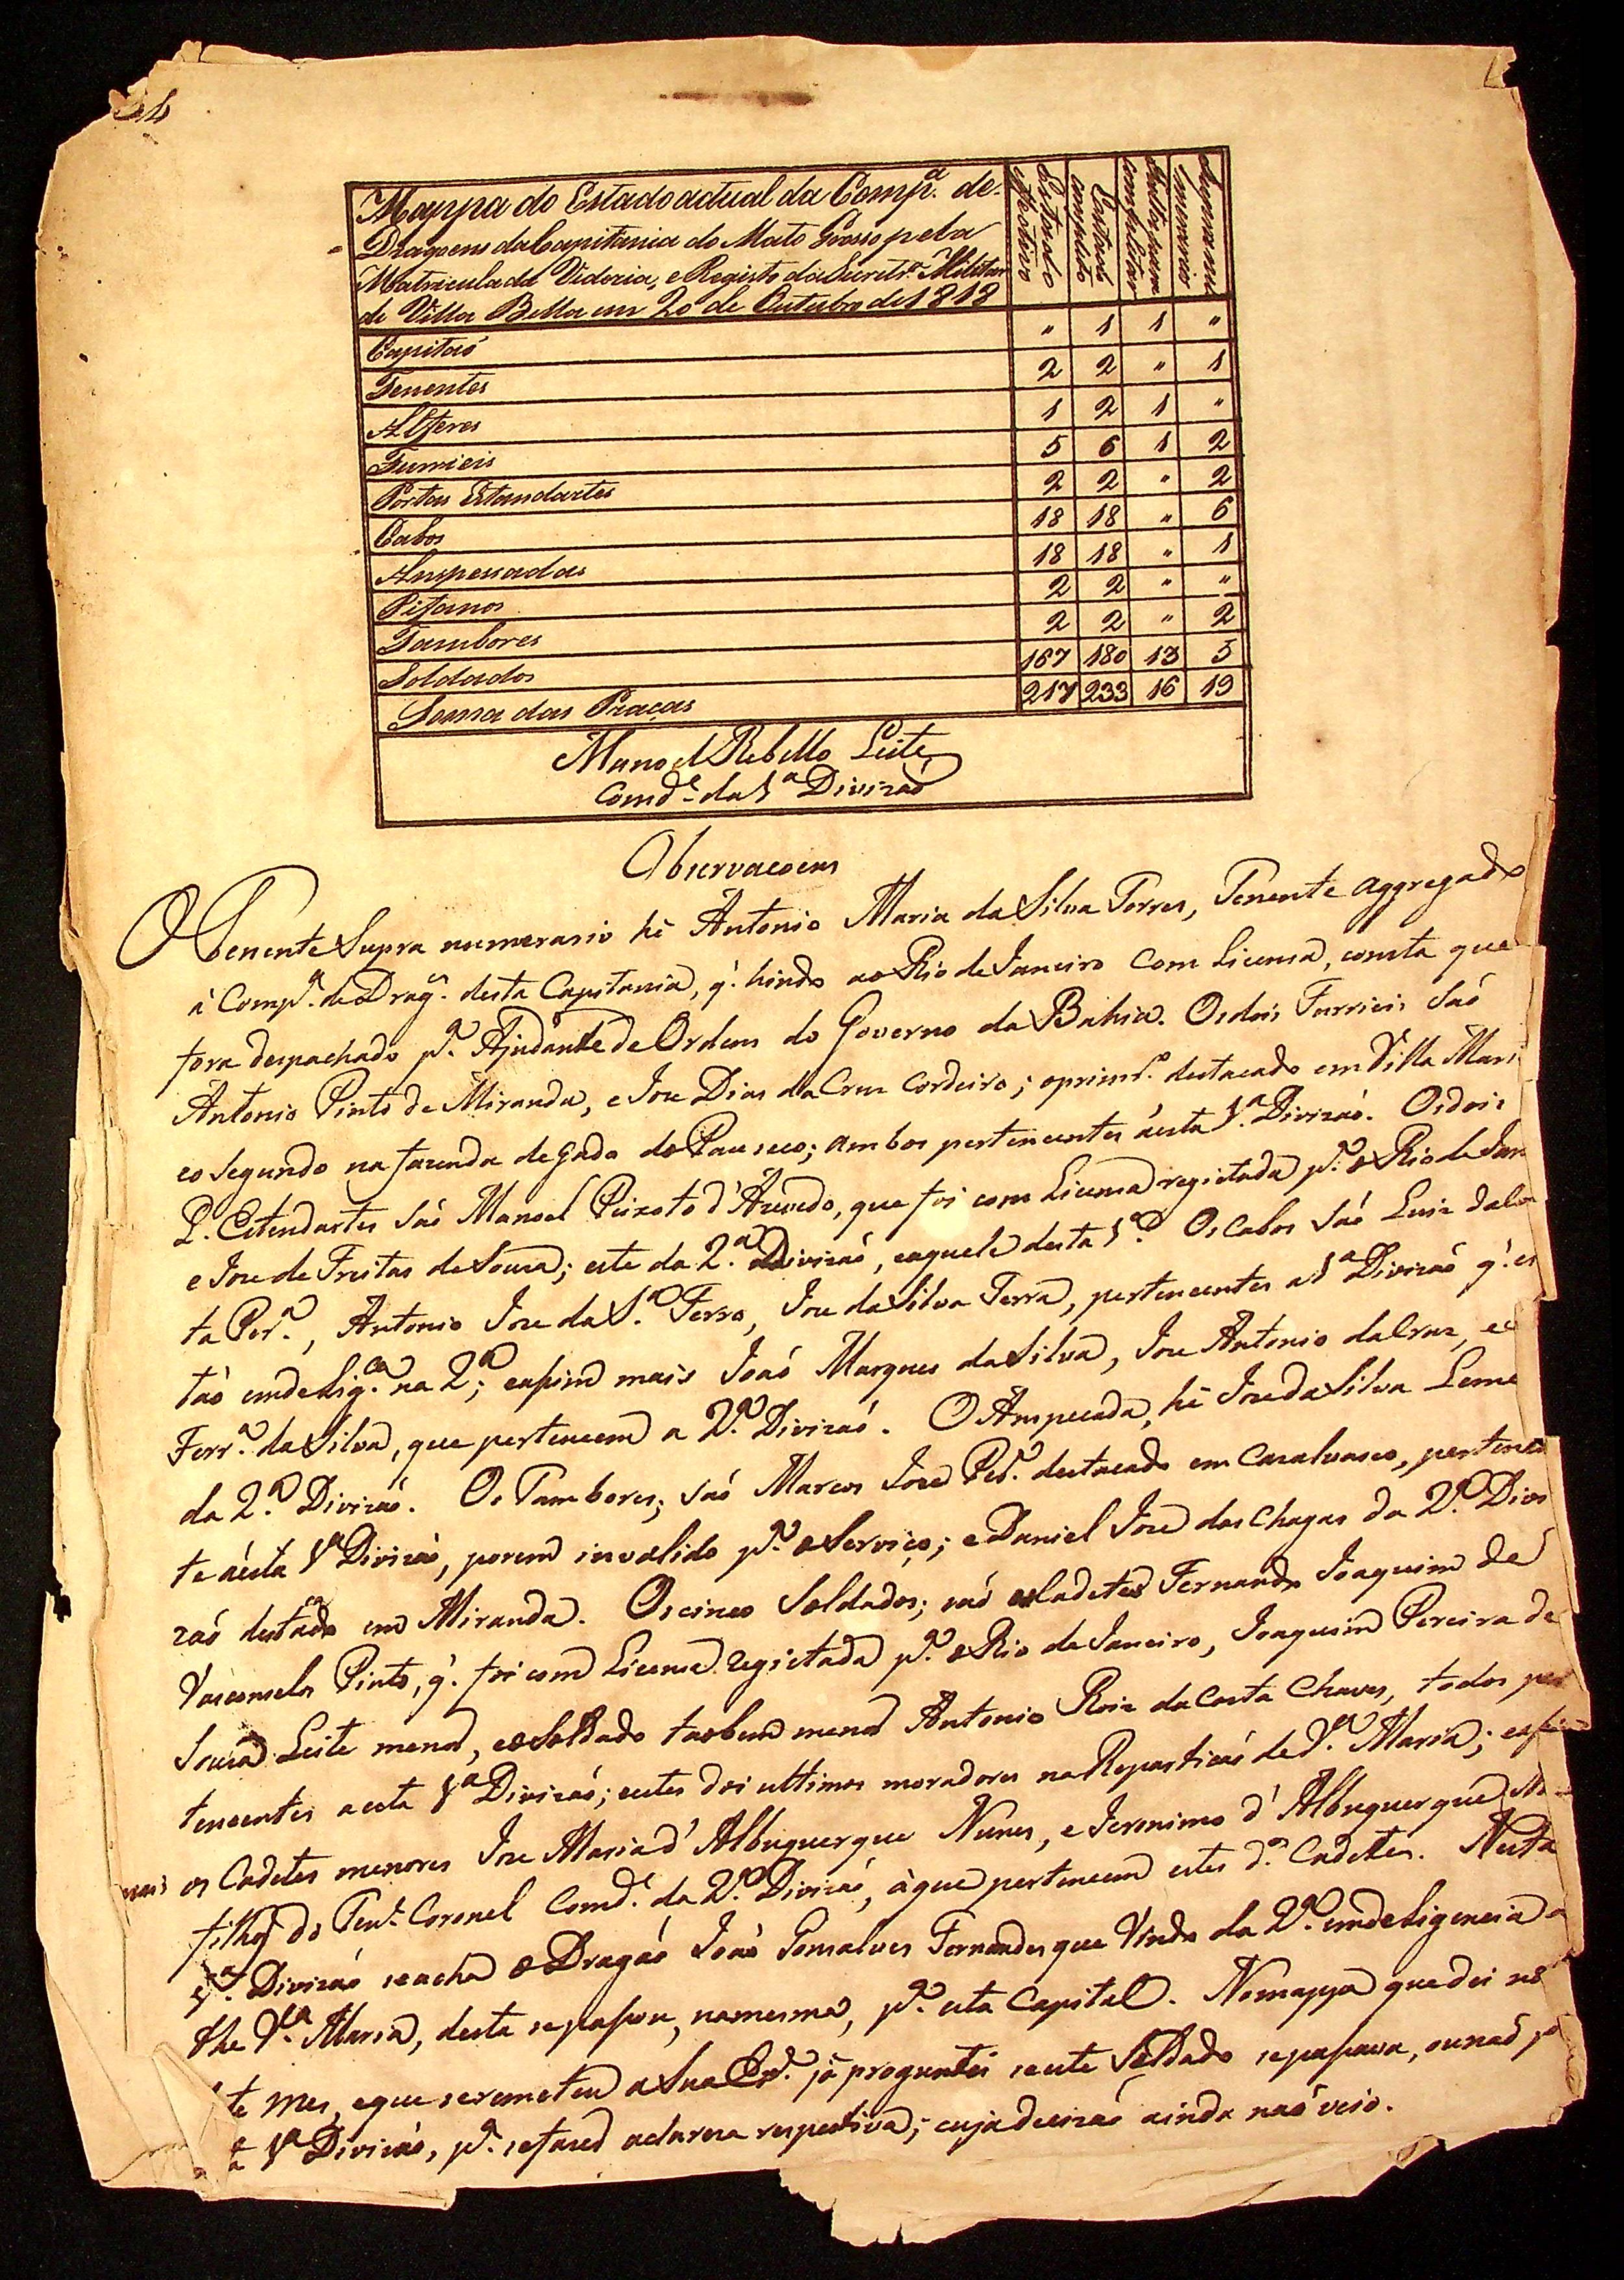 Mappa do Estado actual da Comp.ª de
Dragoens da Capitania do Mato Grosso pela
Matricula da Vedoria, e Registo da Secret.ª Militar
de Villa Bella em 20 de Outubro de 1818
Estado effectivo
Estado completo
Faltaõ para completar
Supranumerarios
Capitaõ " 1 1 "
Tenentes 2 2 " 1
Alferes 1 2 1 "
Furrieis 5 6 1 2
Portas Estandartes 2 2 " 2
Cabos 18 18 " 6
Anspessadas 18 18 " 1
Pifanos 2 2 " "
Tambores 2 2 " 2
Soldados 167 180 13 5
Soma das Praças 217 233 16 19
Manoel Rebello Leite
Comd.e da 1.ª Divizaõ
Observacoens
O Tenente Supra numerario hé Antonio Maria da Silva Torres, Tenente aggregado
á Comp.ª de Drag.s desta Capitania, q.' hindo ao Rio de Janeiro com Licensa, consta que
fora despachado p.ª Ajudante de Ordens do Governo da Bahia. Os dois Furrieis saõ
Antonio Pinto de Miranda, e Joze Dias da Cruz Cordeiro; o prim.º destacado em Villa Mari
e o segundo na fazenda de gado do Pau seco; ambos pertencentes á esta 1.ª Divizaõ. Os dois
P. Estendartes saõ Manoel Peixoto d'Azevedo, que foi com Licensa registada p.ª o Rio de Jan
e Joze de Freitas de Souza; este da 2.ª Divizaõ, e aquele desta 1.ª Os Cabos saõ Luiz da
ta Per.ª, Antonio Joze da S.ª Ferro, Joze da Silva Terra, pertencentes a 1.ª Divizaõ q.' es
taõ em delig.ca na 2.ª; e assim mais Joaõ Marques da Silva, Joze Antonio da Cruz, e
Ferr.ª da Silva, que pertencem a 2.ª Divizaõ. O Anspecada, hé Joze da Silva Leme
da 2.ª Divizaõ. Os Tambores; saõ Marcos Joze Per.ª destacado em Casalvasco, pertencen
te a esta 1.ª Divizaõ, porem invalido p.ª o Serviço; e Daniel Joze das Chagas da 2.ª Divi
zaõ destacado em Miranda. Os cinco Soldados; saõ o Cadete Fernando Joaquim de
Vasconselos Pinto, q.' foi com Licensa registada p.ª o Rio de Janeiro, Joaquim Pereira de
Souza Leite menor, e o Soldado taobem menor Antonio Roiz da Costa Chaves, todos per
tencentes a esta 1.ª Divizaõ; estes doi ultimos moradores na Repartiçaõ de V.ª Maria; e assi
mais os Cadetes menores Joze Maria d'Albuquerque Nunes, e Jeronimo d'Albuquerque
filhos do Ten.e Coronel Comd.e da 2.ª Divizaõ, á que pertencem estes d.os Cadetes. Nesta
1.ª Divizaõ se acha o Dragaõ Joaõ Gonsalves Fernandes que vindo da 2.ª em deligencia a
the V.ª Maria, desta se passou, na mesma, p.ª esta Capital. No mappa que dei no
te mes, e que se remeteu a Sua Ex.ª já proguntei se este Soldado se passava, ou naõ p
a 1.ª Divizaõ, p.ª se fazer a clareza respectiva; cuja decizaõ ainda naõ veio.